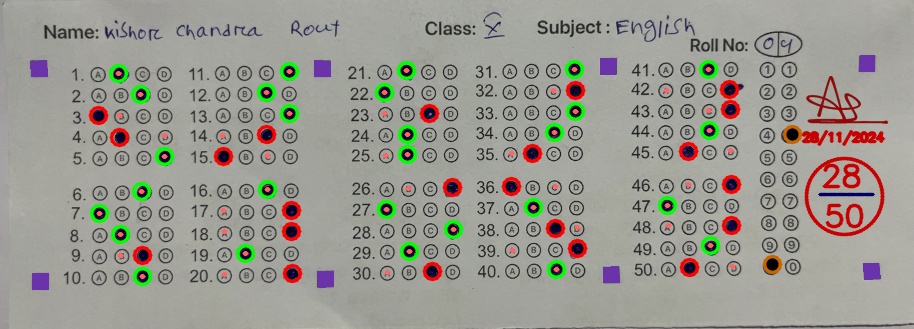 Name: Kishore Chandra Rout Class: X Subject: English
Roll No: 04
1. A C D
2. A B D
3. B C D
4. A C D
5. A B C
6. A B D
7. B C D
8. A C D
9. A B D
10. A B D
11. A B C
12. A B D
13. A B C
14. A B D
15. B C D
16. A B D
17. A B C
18. A B C
19. A C D
20. A B C
21. A C D
22. B C D
23. A B D
24. A C D
25. A C D
26. A B C
27. B C D
28. A B C
29. A C D
30. A B D
31. A B C
32. A B C
33. A B C
34. A B D
35. A C D
36. B C D
37. A C D
38. A B D
39. A B C
40. A B D
41. A B D
42. A B C
43. A B C
44. A B D
45. A C D
46. A B C
47. B C D
48. A B C
49. A B D
50. A C D
1 1
2 2
3 3
4
5 5
6 6
7 7
8 8
9 9
0
28/11/2024
28
50